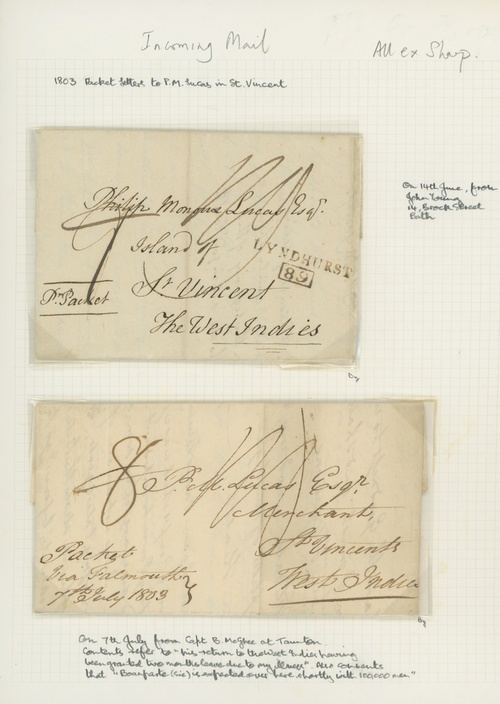 Incoming Mail
All ex Sharp.
1803 Packet letters to P.M. Lucas in St. Vincent
On 14th June, from
John Young
14, Brock Street
Bath
Philip Monoux Lucas Esqr.
Island of
LYNDHURST
89
St Vincent
Pr. Packet
The West Indies
By
8
P. M. Lucas Esqr
Merchant,
St Vincents
West Indies
Packet
Via Falmouth
7th July 1803
By
On 7th July from Capt B. McGhee at Taunton
Contents refer to "his return to the West Indies having
been granted two months leave due to my illness". Also comments
that "Bonaparte (sic) is expected over here shortly with 100,000 men"